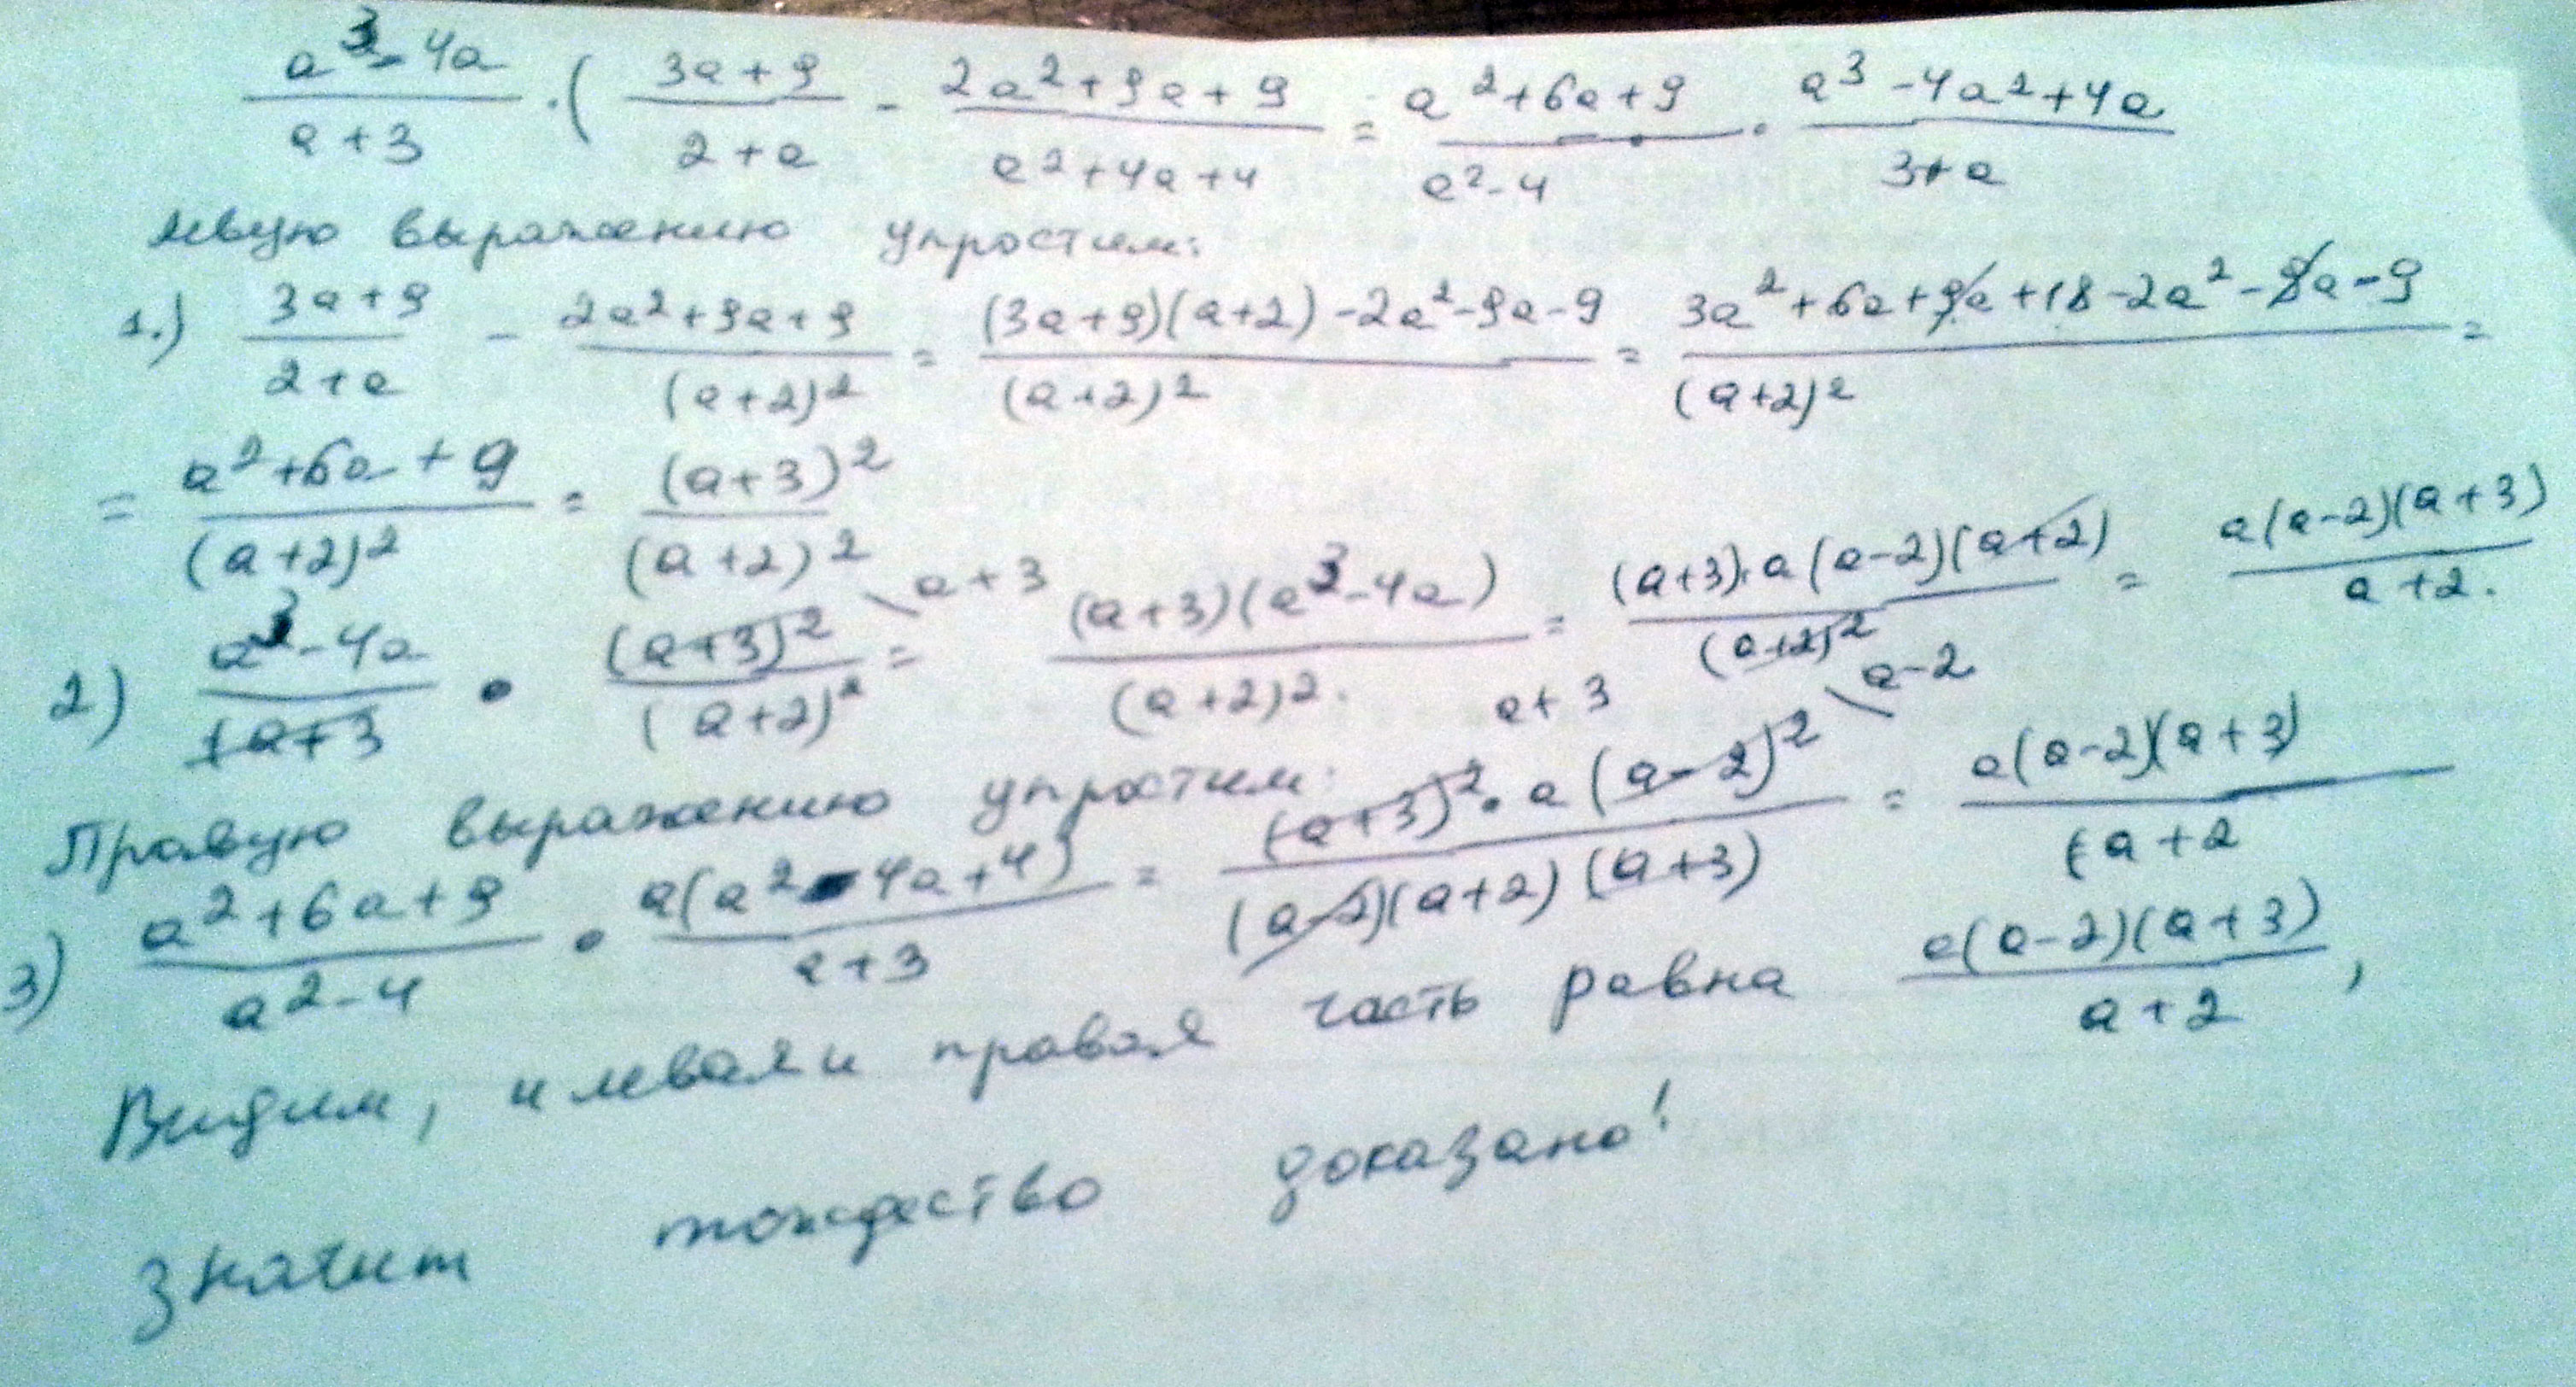 (a³-4a)/(a+3) · ( (3a+9)/(2+a) - (2a²+9a+9)/(a²+4a+4) = (a²+6a+9)/(a²-4) · (a³-4a²+4a)/(3+a)
левую выражению упростим:
1.) (3a+9)/(2+a) - (2a²+9a+9)/(a+2)² = ((3a+9)(a+2)-2a²-9a-9)/(a+2)² = (3a²+6a+9a+18-2a²-9a-9)/(a+2)² =
= (a²+6a+9)/(a+2)² = (a+3)²/(a+2)²
2) (a³-4a)/(a+3) • (a+3)²/(a+2)² \a+3 = ((a+3)(a³-4a))/(a+2)². = ((a+3)·a(a-2)(a+2))/(a+2)² = (a(a-2)(a+3))/(a+2).
Правую выражению упростим:
3) (a²+6a+9)/(a²-4) • (a(a²-4a+4))/(a+3) = (a+3 (a+3)²•a(a-2)² \a-2)/((a-2)(a+2)(a+3)) = (a(a-2)(a+3))/(a+2
Видим, и левая и правая часть равна (a(a-2)(a+3))/(a+2),
значит тождество доказано!